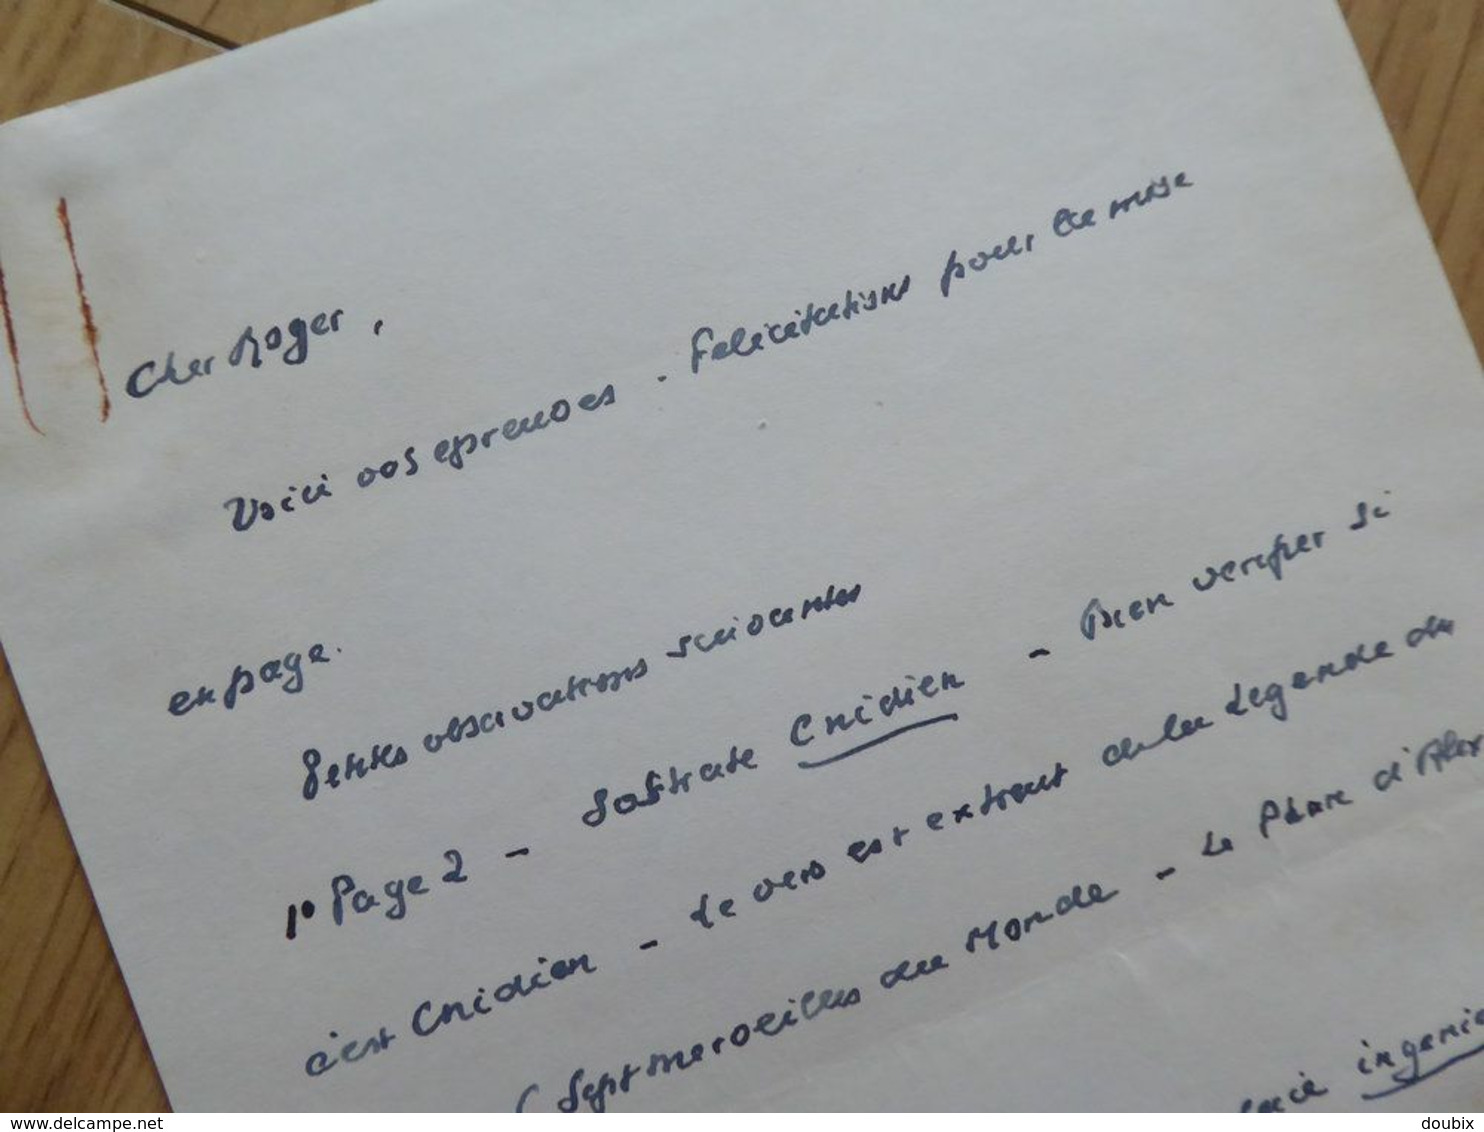 Cher Roger,
Voici vos epreuves. Felicitations pour la mise
en page.
Petites observations suivantes
1° Page 2 - Sostrate Cnidien - Bien verifier si
c'est Cnidien - Le vers est extrait de la Legende des
(Sept merveilles du Monde - Le Phare d'Alex
ingenie
www.delcampe.net
doubix